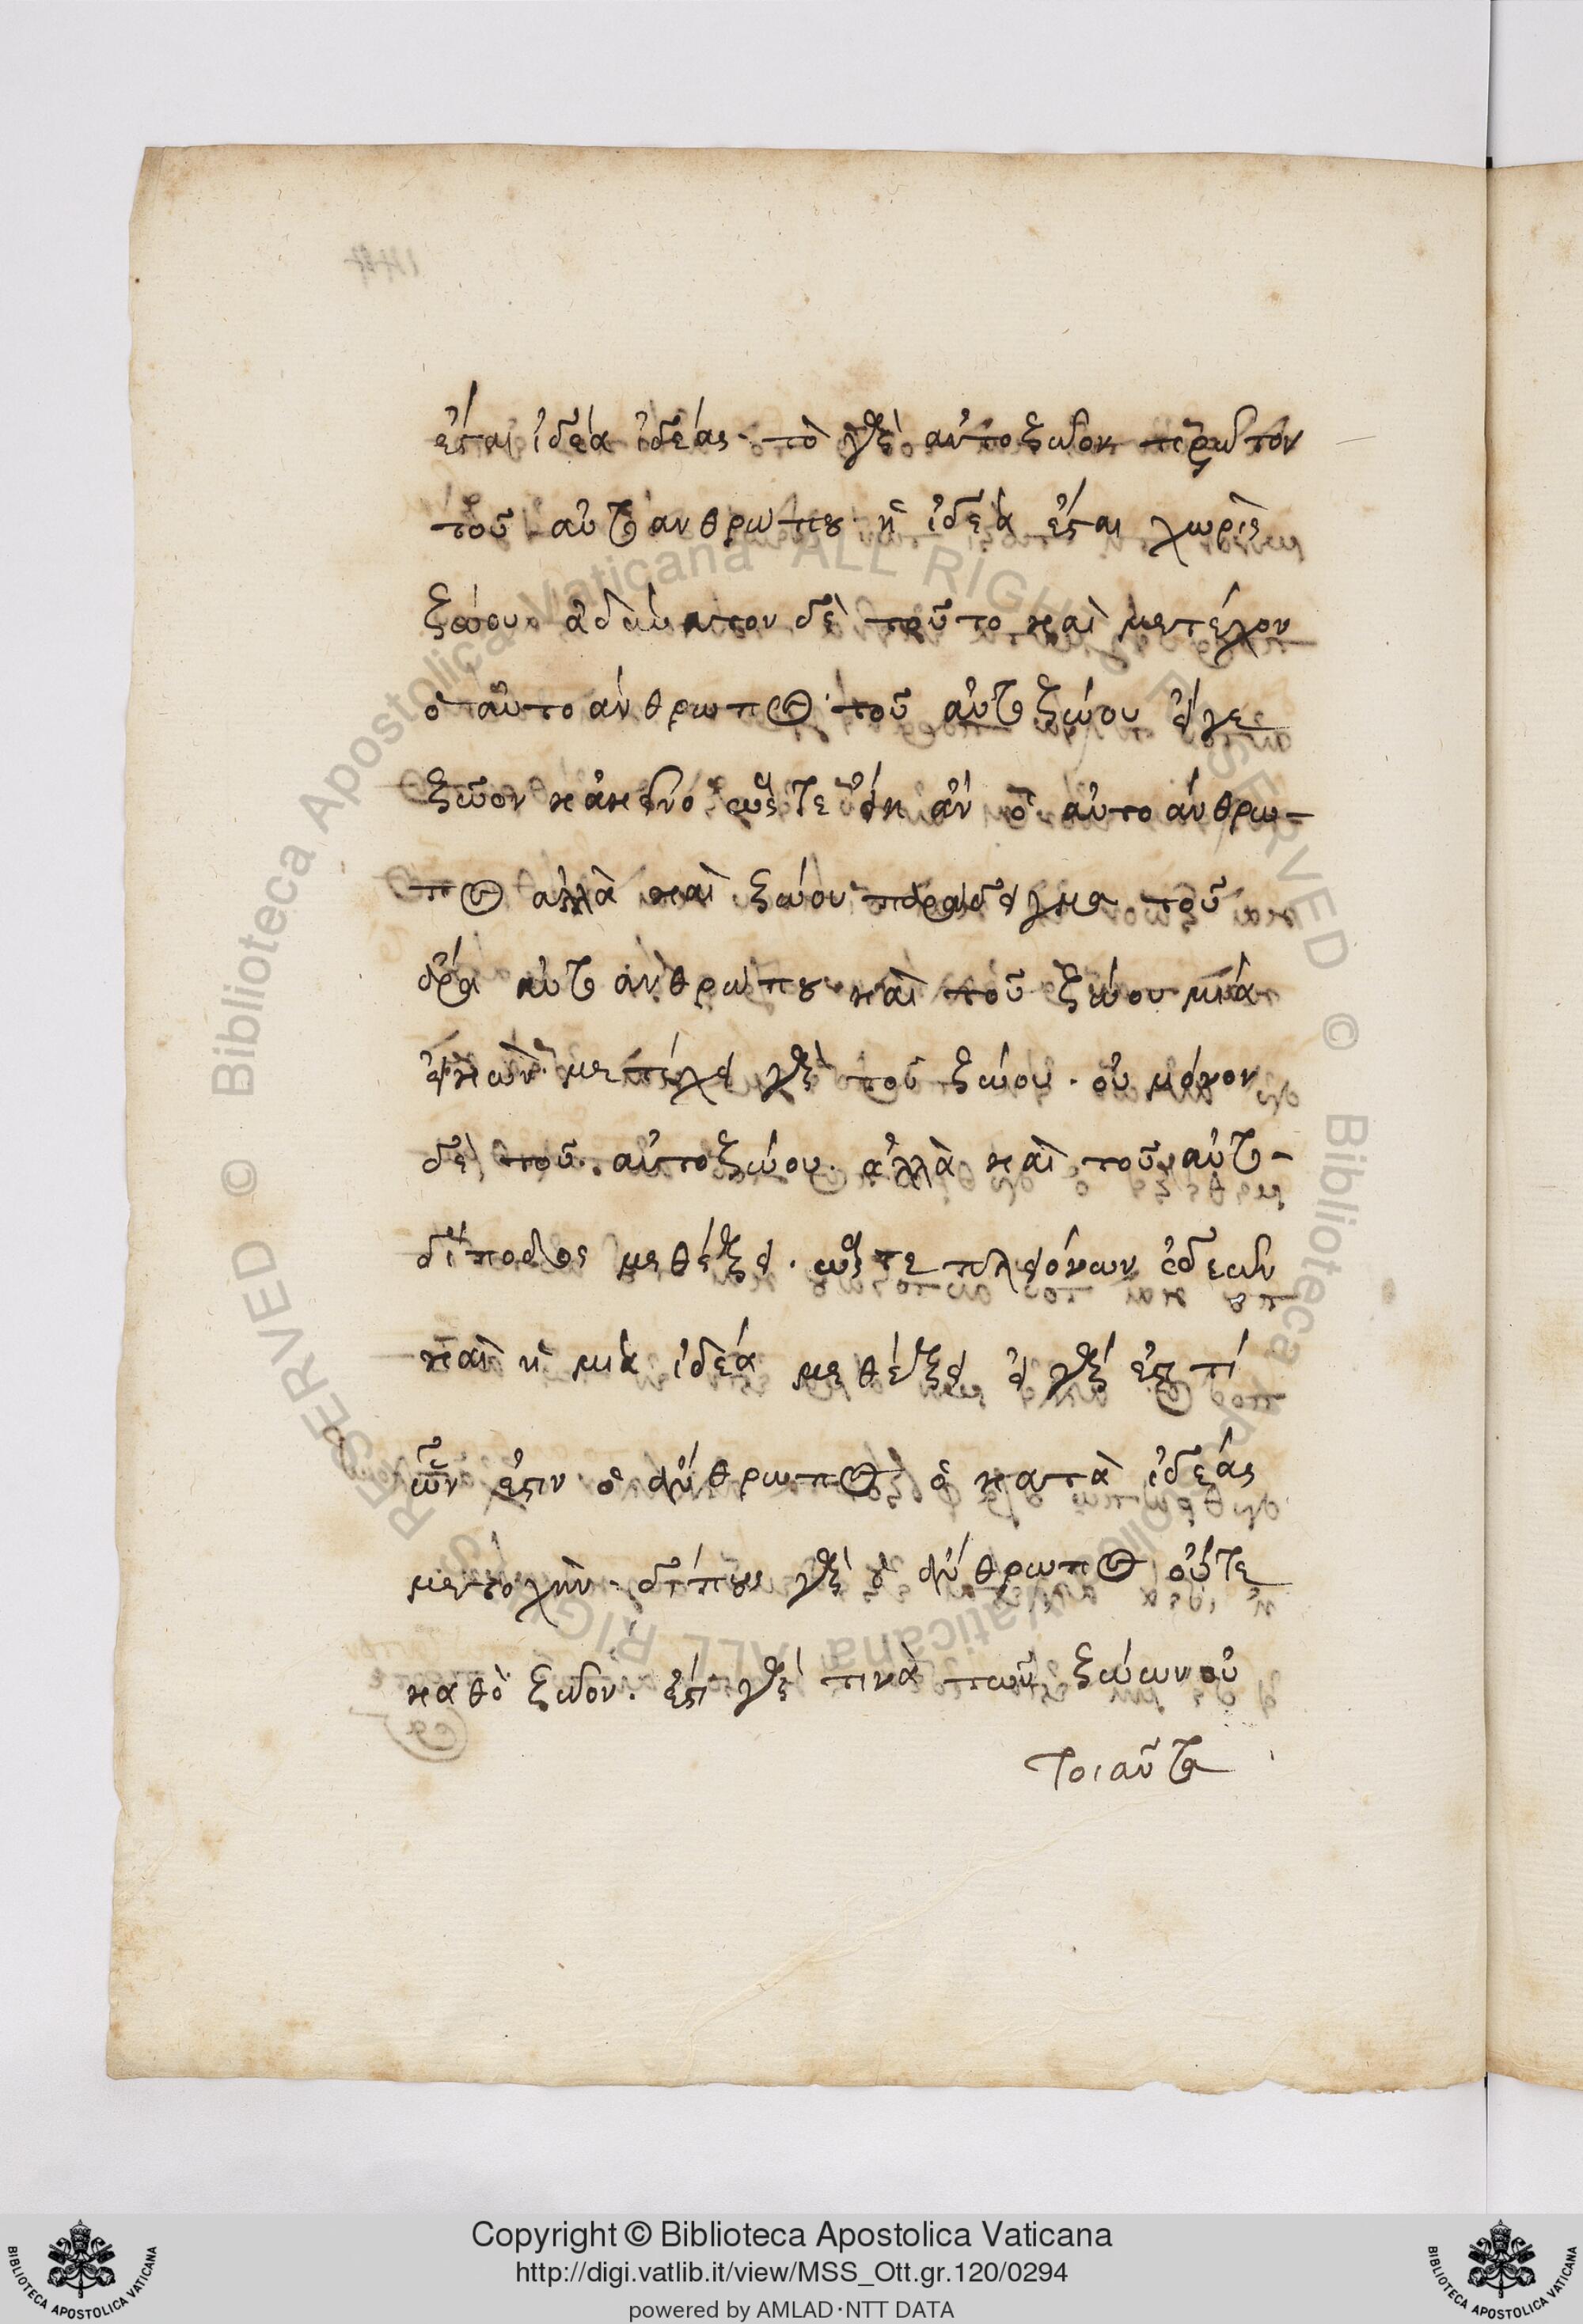 ἔσται ἰδέα ἰδέας· τὸ γὰρ αὐτοζῶον πρῶτον
τοῦ αὐτανθρώπου ἢ ἰδέα ἔσται χωρὶς
ζώου· ἀδύνατον δὲ τοῦτο καὶ μετέχον
ὁ αὐτοάνθρωπος· τοῦ αὐτοζώου εἴγε
ζῶον κἀκεῖνο ὥστε εἴη ἂν ὁ αὐτοάνθρω-
πος ἀλλὰ καὶ ζώου παράδειγμα τοῦ
ἄρα αὐτανθρώπου καὶ τοῦ ζώου μία
εἰκὼν μετέχει γὰρ τοῦ ζώου· οὐ μόνον
δὲ τοῦ αὐτοζώου· ἀλλὰ καὶ τοῦ αὐτο-
δίποδος μεθέξει· ὥστε πλειόνων ἰδεῶν
καὶ ἡ μία ἰδέα μεθέξει εἰ γάρ ἐστί
ὧν ἐστιν ὁ ἄνθρωπος ὁ κατὰ ἰδέας
μετοχὴν· δίπους γὰρ ὁ ἄνθρωπος οὔτε
καθὸ ζῶον· ἔστι γὰρ τινὰ τῶν ζώων οὐ
τοιαῦτα
Copyright © Biblioteca Apostolica Vaticana
http://digi.vatlib.it/view/MSS_Ott.gr.120/0294
powered by AMLAD·NTT DATA
BIBLIOTECA APOSTOLICA VATICANA
BIBLIOTECA APOSTOLICA VATICANA